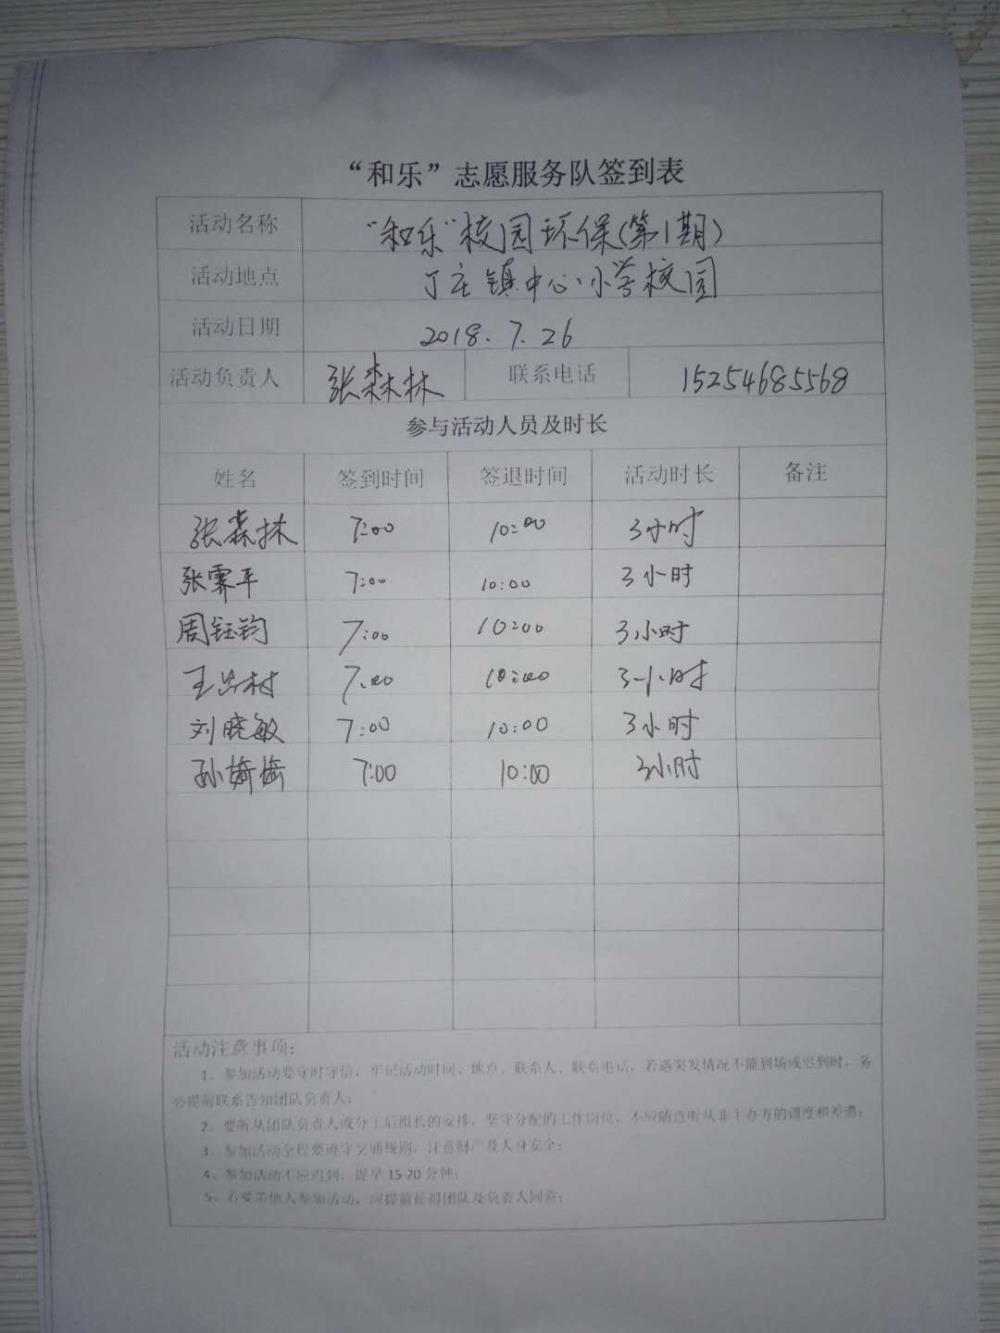 “和乐”志愿服务队签到表
活动名称 “和乐”校园环保(第1期)
活动地点 丁庄镇中心小学校园
活动日期 2018.7.26
活动负责人 张森林 联系电话 15254685568
参与活动人员及时长
姓名 签到时间 签退时间 活动时长 备注
张森林 7:00 10:00 3小时
张霁平 7:00 10:00 3小时
周钰钧 7:00 10:00 3小时
王 村 7:00 10:00 3小时
刘晓敏 7:00 10:00 3小时
孙 7:00 10:00 3小时
活动注意事项:
1、参加活动要守时守信,牢记活动时间、地点、联系人、联系电话,若遇突发情况不能到场或迟到时,务
必提前联系告知团队负责人;
2、要听从团队负责人或分工后组长的安排,坚守分配的工作岗位,不应随意听从非主办方的调度和差遣;
3、参加活动全程要遵守交通规则,注意财产及人身安全;
4、参加活动不应迟到,提早15-20分钟;
5、若要带他人参加活动,应提前征得团队及负责人同意;